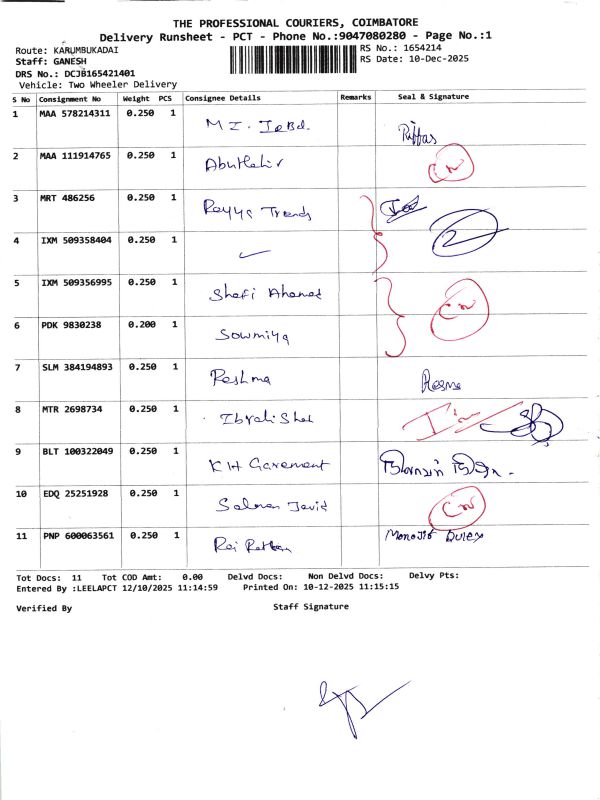 THE PROFESSIONAL COURIERS, COIMBATORE
Delivery Runsheet - PCT - Phone No.:9047080280 - Page No.:1
Route: KARUMBUKADAI RS No.: 1654214
Staff: GANESH RS Date: 10-Dec-2025
DRS No.: DCJB165421401
Vehicle: Two Wheeler Delivery
S No Consignment No Weight PCS Consignee Details Remarks Seal & Signature
1 MAA 578214311 0.250 1
2 MAA 111914765 0.250 1 Abuthahir
3 MRT 486256 0.250 1 Rayya Trends
4 IXM 509358404 0.250 1
5 IXM 509356995 0.250 1 Shafi Ahamed
6 PDK 9830238 0.200 1 Sowmiya
7 SLM 384194893 0.250 1 Reshma
8 MTR 2698734 0.250 1
9 BLT 100322049 0.250 1 KH Garement
10 EDQ 25251928 0.250 1 Salman Javid
11 PNP 600063561 0.250 1
Tot Docs: 11 Tot COD Amt: 0.00 Delvd Docs: Non Delvd Docs: Delvy Pts:
Entered By :LEELAPCT 12/10/2025 11:14:59 Printed On: 10-12-2025 11:15:15
Verified By Staff Signature